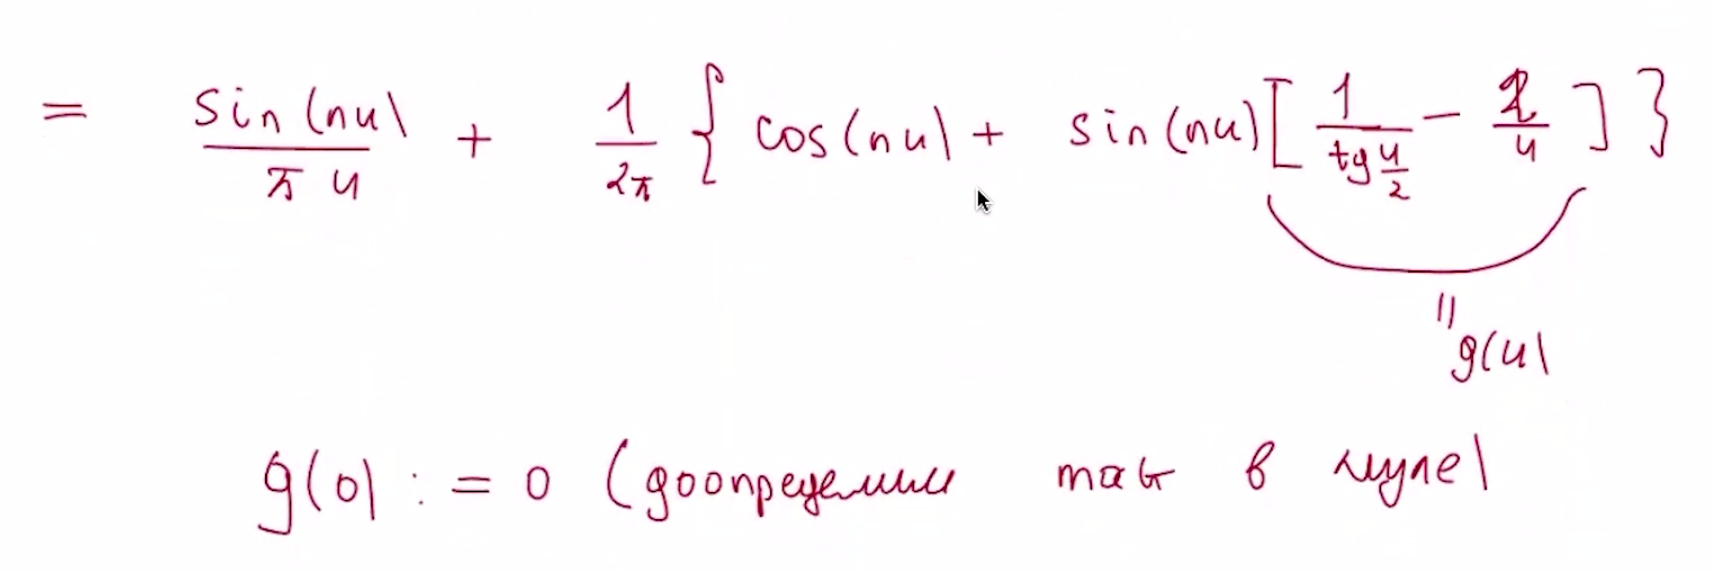 = sin(nu) / πu + 1/2π { cos(nu) + sin(nu) [ 1 / tg u/2 - 2/u ] }
" g(u)
g(0) := 0 (доопределим так в нуле)